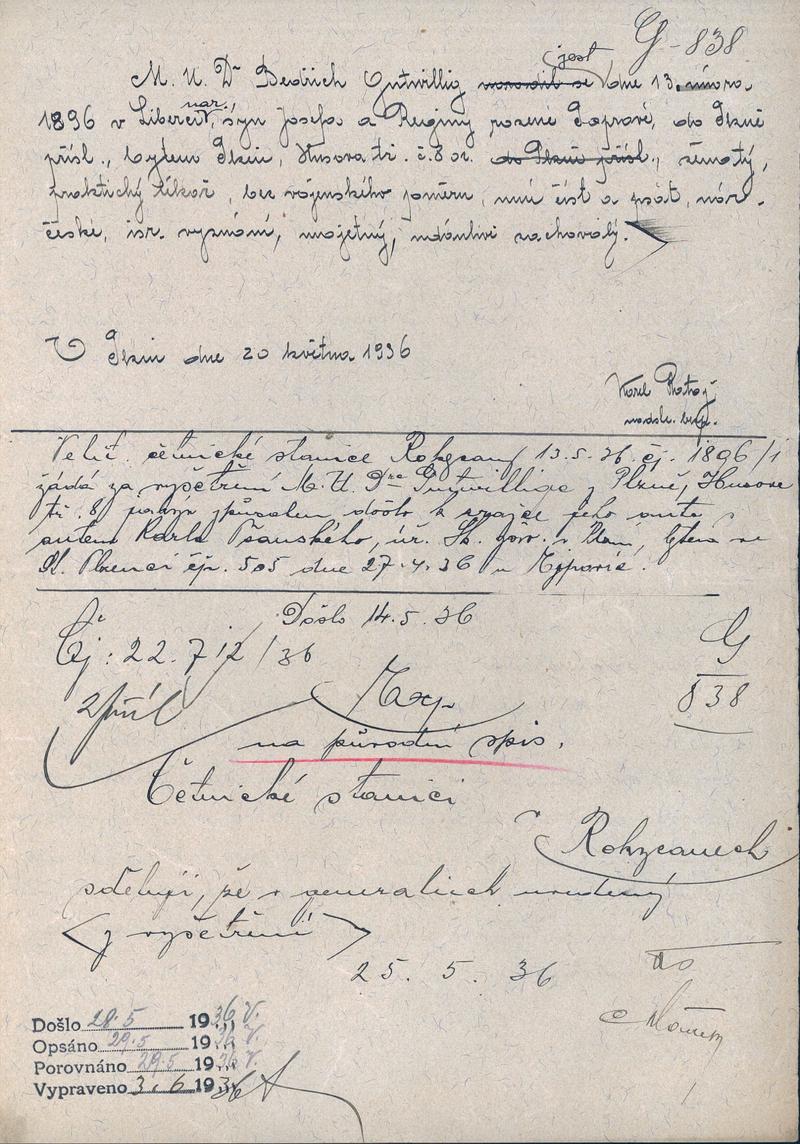 G-838
jest
M. U. Dr Bedřich Gutwillig narodil se dne 13. února
nar.
1896 v Liberci, syn Josefa a Reginy rozené Popravé, do Plzně
přísl., bytem Plzeň, Husova tř. č. 8 do Plzně přísl., ženatý,
praktický lékař, bez vojenského poměru, umí číst a psát, nár.
české, isr. vyznání, majetný, zachovalý.
V Plzni dne 20 května 1936
Karel
Velit. četnické stanice Rokycany 13.5.36 čj. 1896/1
žádá za vyšetření M.U.Dra Gutwilliga z Plzně, Husova
tř. 8, jakým způsobem došlo k srážce jeho auta s
autem Karla, úř. v Plzni, bytem ve
St. Plzenci čp. 505 dne 27.4.36 u Ejpovic.
Došlo 14.5.36
Čj: 22.712/36
G
838
2 příl
na původní spis.
Četnické stanici
v
Rokycanech
sděluji, že v generaliích uvedený
<z vyšetření>
25. 5. 36
Došlo 28.5 1936 V.
Opsáno 29.5 1936 V.
Porovnáno 29.5 1936 V.
Vypraveno 3.6 1936